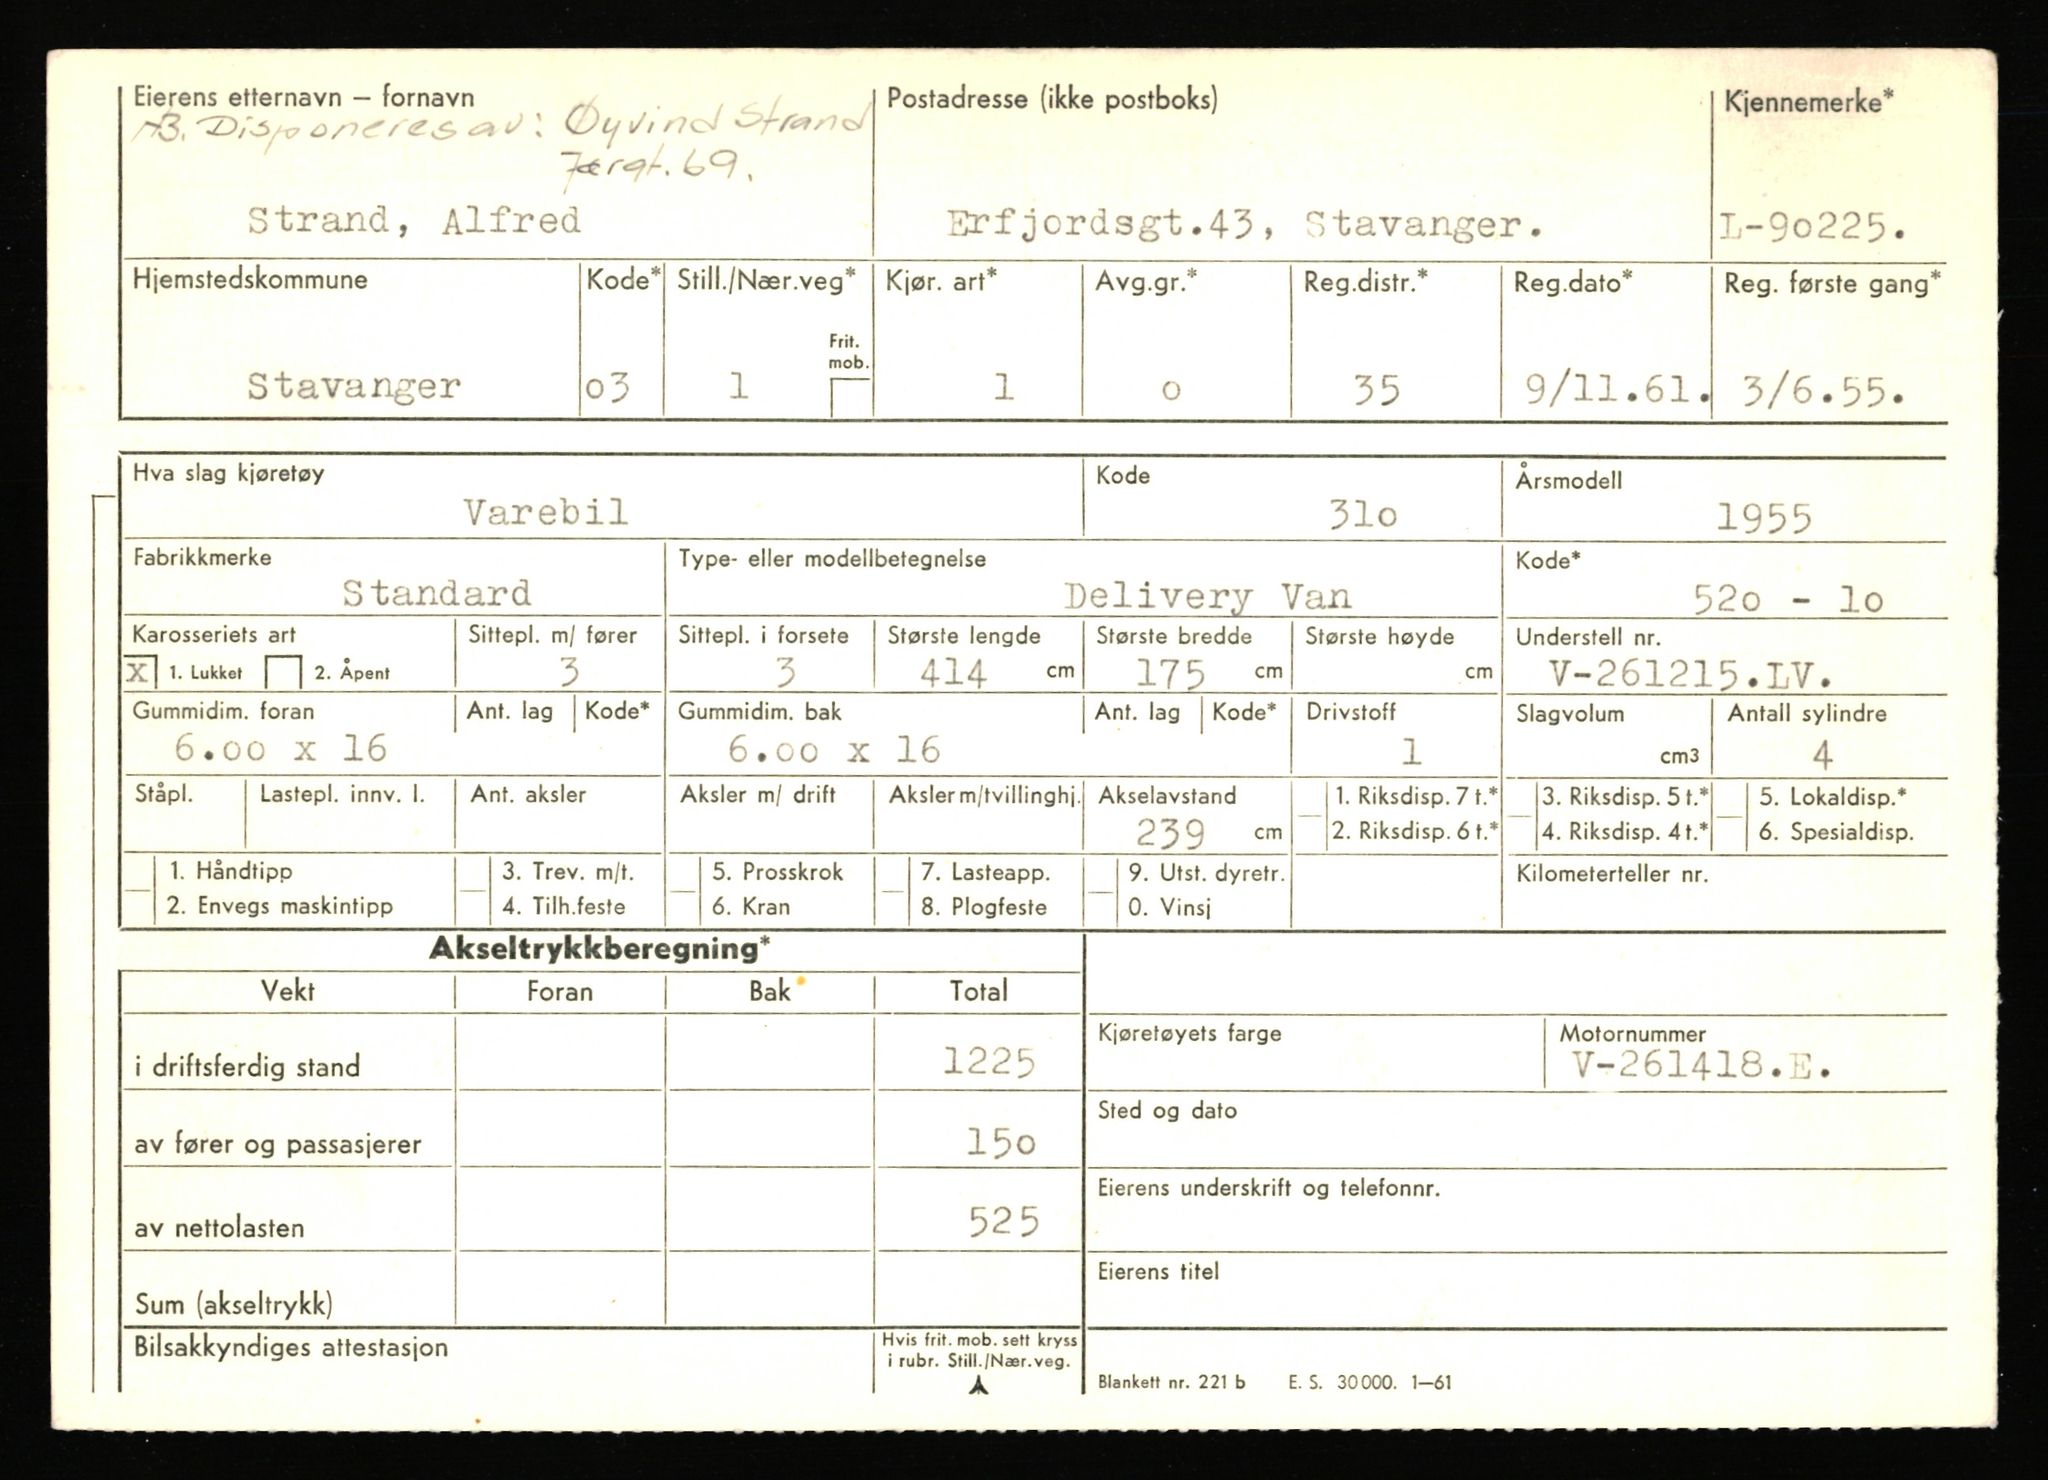 Eierens etternavn – fornavn
Postadresse (ikke postboks)
Kjennemerke*
Disponeres av: Øyvind Strand
Jærgt. 69.
Strand, Alfred
Erfjordsgt.43, Stavanger.
L-90225.
Hjemstedskommune
Kode*
Still./Nær.veg*
Kjør. art*
Avg.gr.*
Reg.distr.*
Reg.dato*
Reg. første gang*
Frit.
mob.
Stavanger
o3
1
1
o
35
9/11.61.
3/6.55.
Hva slag kjøretøy
Kode
Årsmodell
Varebil
31o
1955
Fabrikkmerke
Type- eller modellbetegnelse
Kode*
Standard
Delivery Van
52o - 1o
Karosseriets art
Sittepl. m/ fører
Sittepl. i forsete
Største lengde
Største bredde
Største høyde
Understell nr.
X 1. Lukket 2. Åpent
3
3
414 cm
175 cm
cm
V-261215.LV.
Gummidim. foran
Ant. lag
Kode*
Gummidim. bak
Ant. lag
Kode*
Drivstoff
Slagvolum
Antall sylindre
6.oo x 16
6.oo x 16
1
cm3
4
Ståpl.
Lastepl. innv. l.
Ant. aksler
Aksler m/ drift
Aksler m/tvillinghj.
Akselavstand
1. Riksdisp. 7 t.*
3. Riksdisp. 5 t.*
5. Lokaldisp.*
239 cm
2. Riksdisp. 6 t.*
4. Riksdisp. 4 t.*
6. Spesialdisp.
1. Håndtipp
3. Trev. m/t.
5. Prosskrok
7. Lasteapp.
9. Utst. dyretr.
Kilometerteller nr.
2. Envegs maskintipp
4. Tilh.feste
6. Kran
8. Plogfeste
0. Vinsj
Akseltrykkberegning*
Vekt
Foran
Bak
Total
Kjøretøyets farge
Motornummer
i driftsferdig stand
1225
V-261418.E.
Sted og dato
av fører og passasjerer
15o
Eierens underskrift og telefonnr.
av nettolasten
525
Eierens titel
Sum (akseltrykk)
Bilsakkyndiges attestasjon
Hvis frit. mob. sett kryss
i rubr. Still./Nær.veg.
Blankett nr. 221 b E. S. 30 000. 1–61